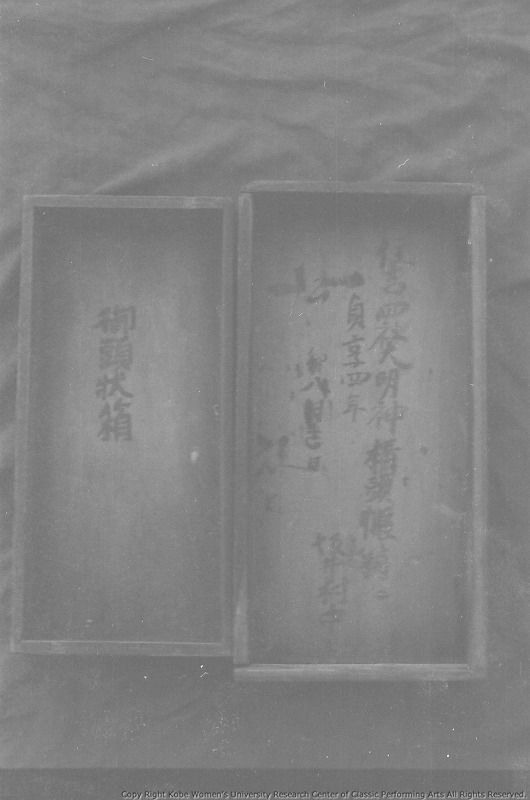 住吉四癸大明神橋頭帳箱之
貞享四年
卯八月吉日
坂井村中
御頭状箱
Copy Right Kobe Women's University Research Center of Classic Performing Arts All Rights Reserved.